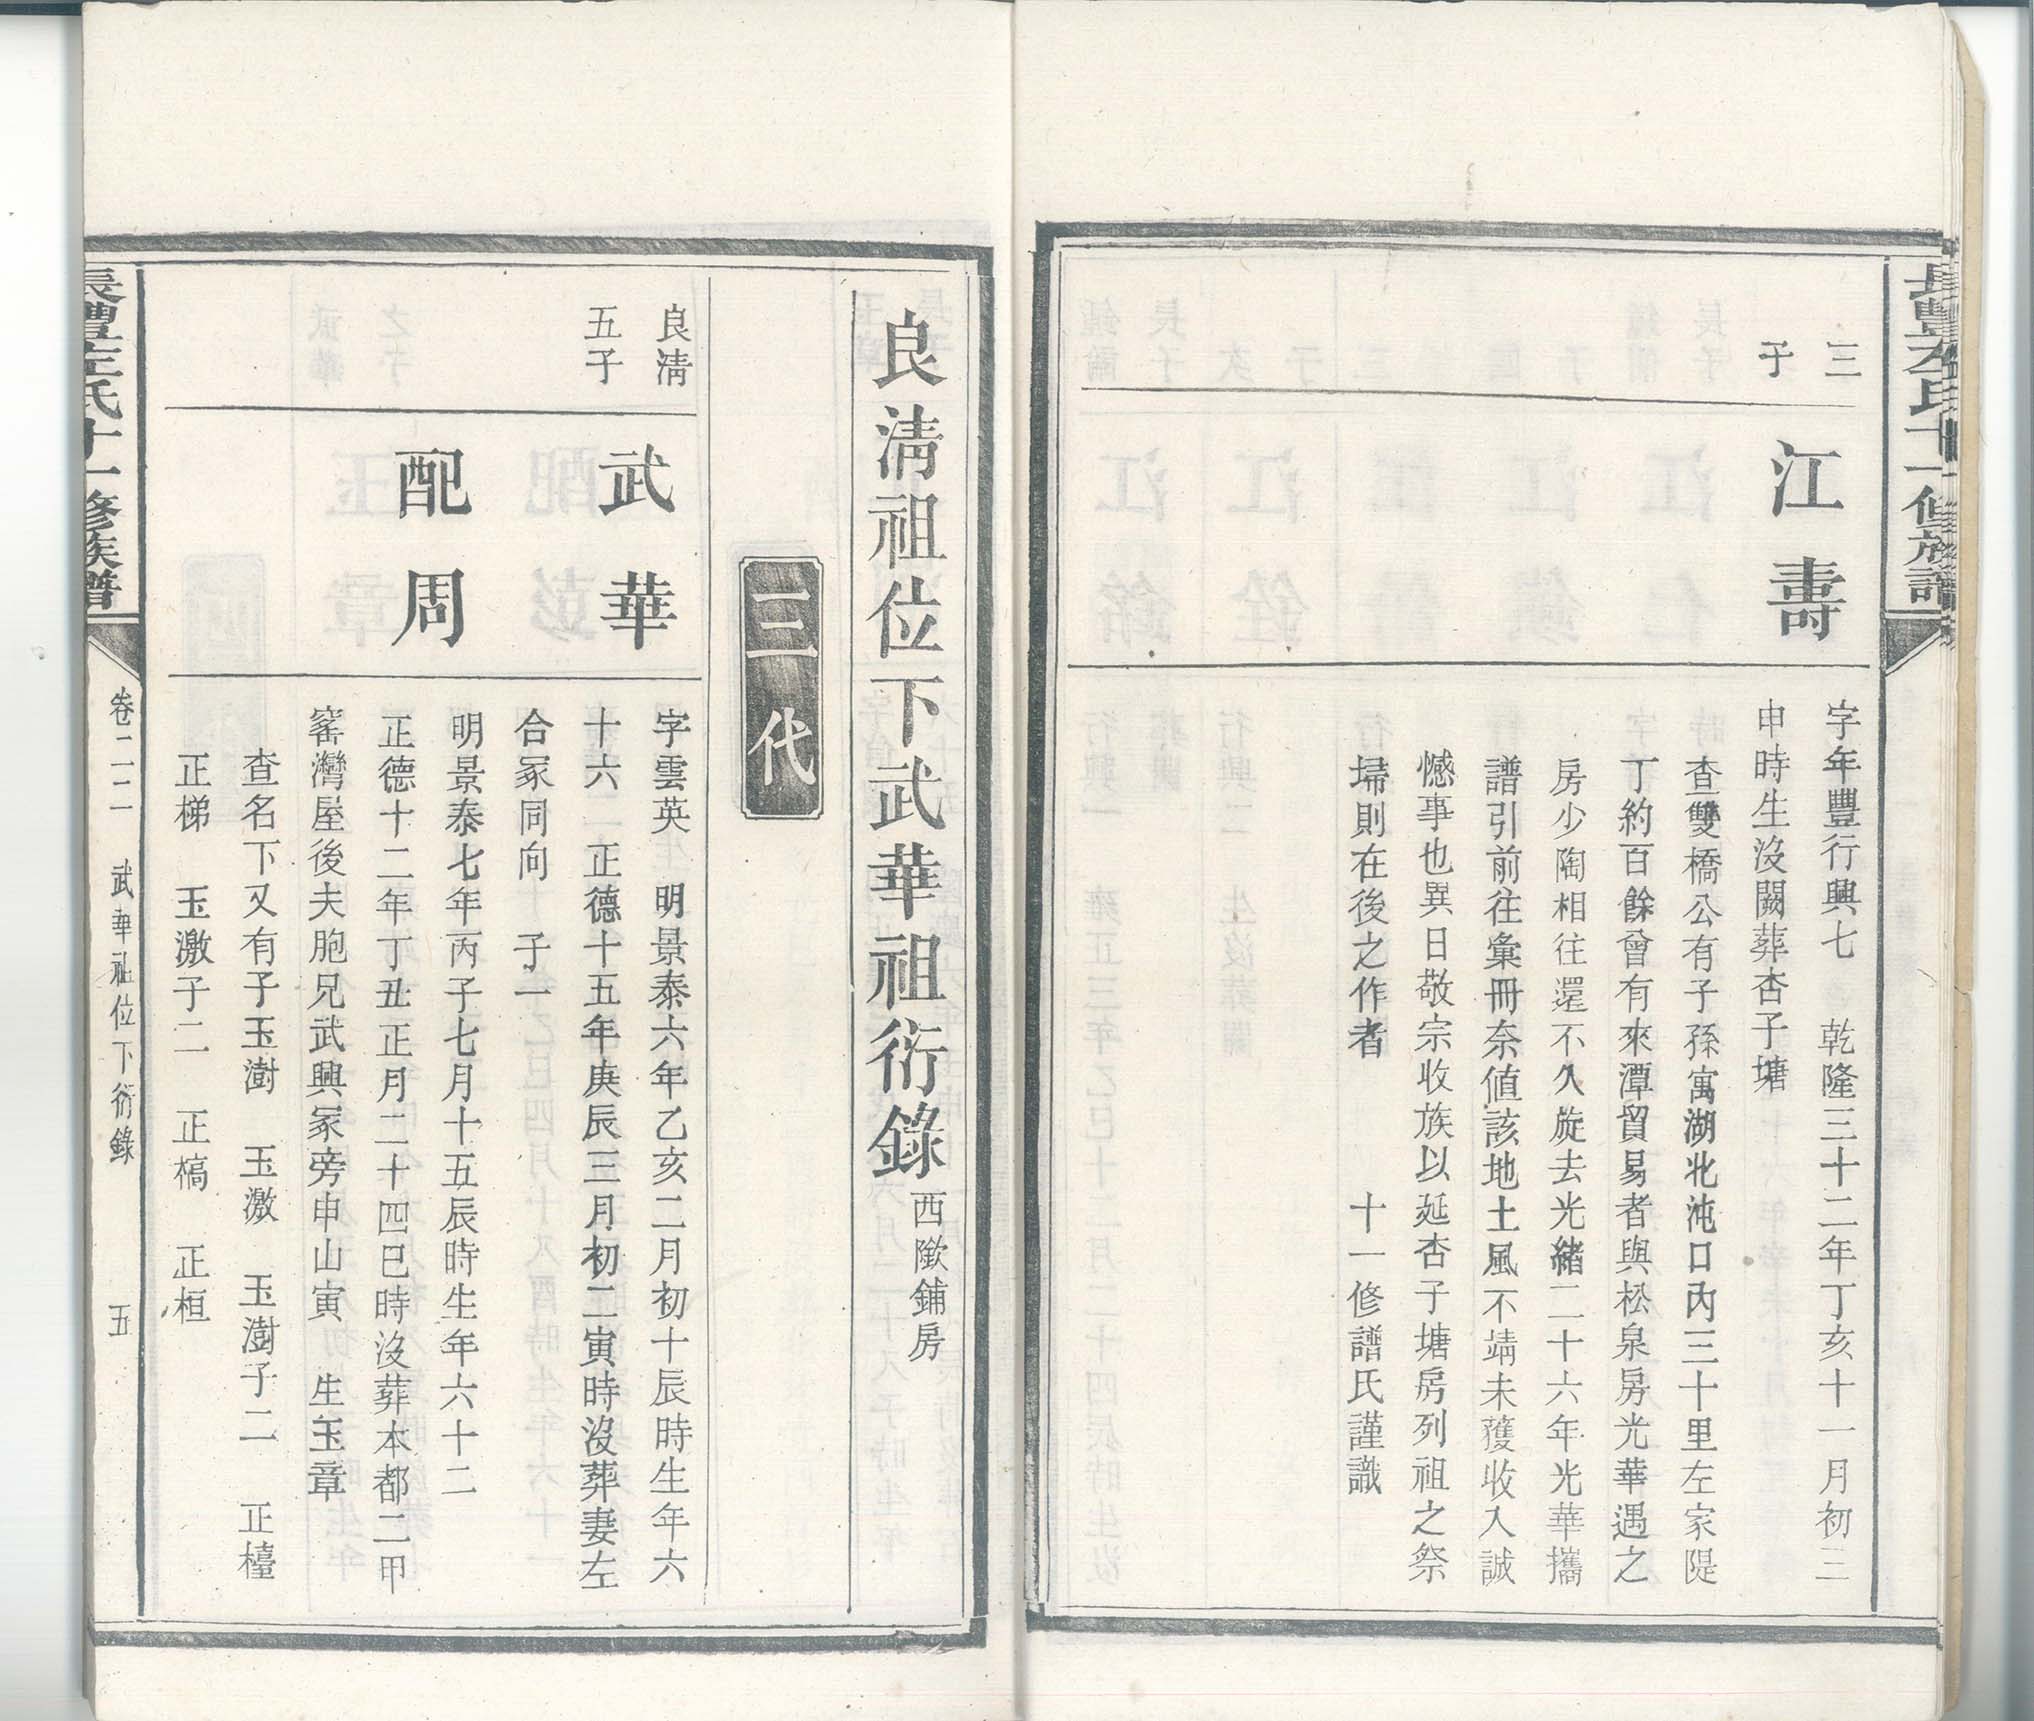 長豊左氏十一修族譜
三
子
江壽
字年豐行興七　乾隆三十二年丁亥十一月初三
申時生沒闕葬杏子塘
查雙橋公有子孫寓湖北沌口內三十里左家隄
丁約百餘曾有來潭貿易者與松泉房光華遇之
房少陶相往還不久旋去光緒二十六年光華攜
譜引前往彙冊奈値該地土風不靖未獲收入誠
憾事也異日敬宗收族以延杏子塘房列祖之祭
埽則在後之作者　十一修譜氏謹識
良淸祖位下武華祖衍錄西歘鋪房
三代
良淸
五子
武華
字雲英　明景泰六年乙亥二月初十辰時生年六
十六　正德十五年庚辰三月初二寅時沒葬妻左
合冢同向　子一
配周
明景泰七年丙子七月十五辰時生年六十二
正德十二年丁丑正月二十四巳時沒葬本都二甲
窰灣屋後夫胞兄武興冢旁申山寅　生玉章
查名下又有子玉澍　玉激　玉澍子二　正檯
正梯　玉激子二　正槁　正桓
長豊左氏十一修族譜
卷二二　武華祖位下衍錄　五